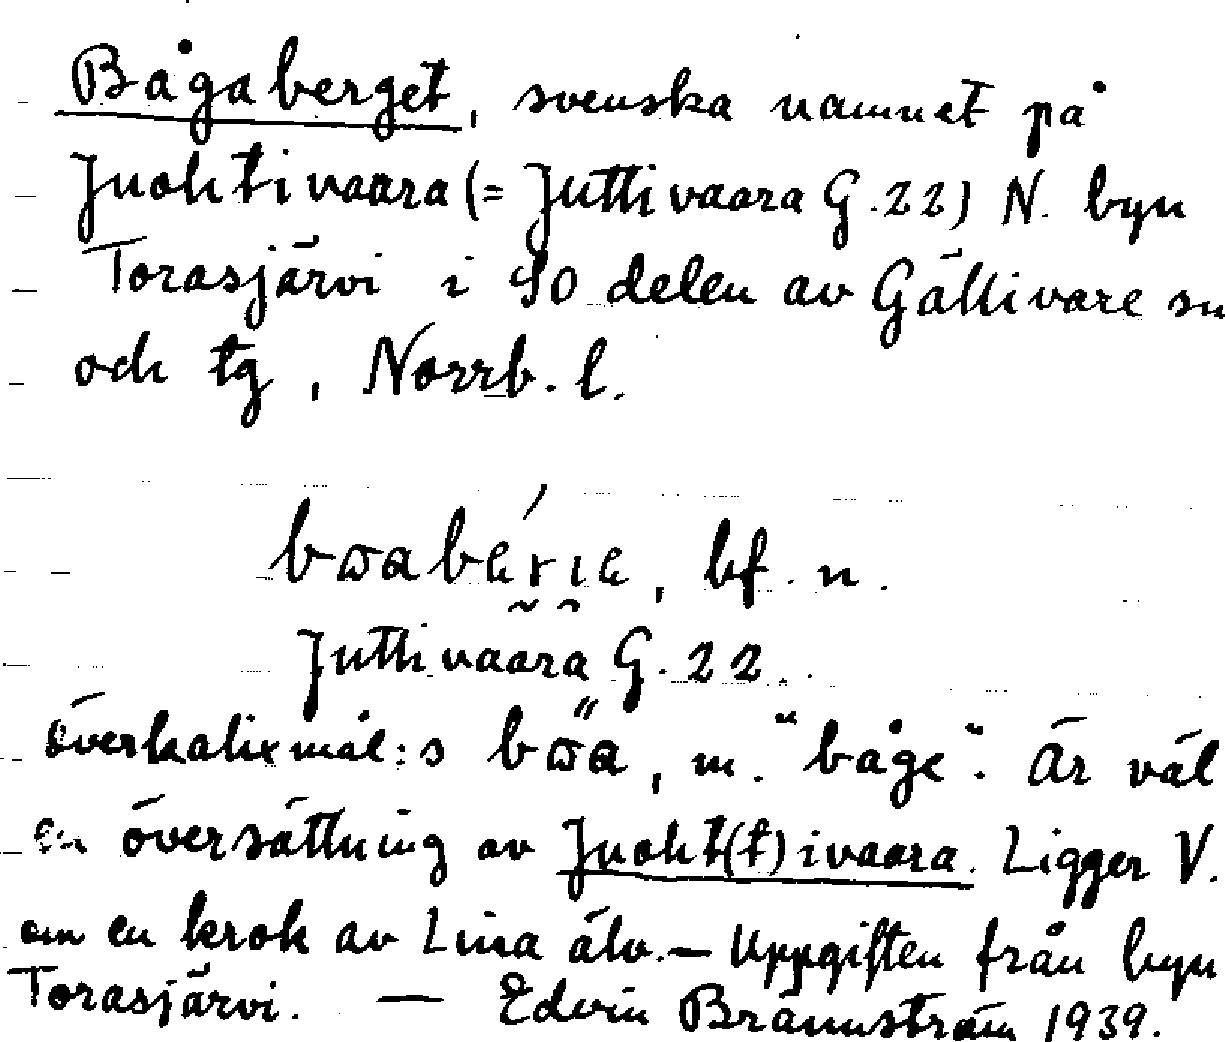 Bågaberget, svenska namnet på
Juohtivaara (= Juttivaara G.22) N. byn
Torasjärvi i SO delen av Gällivare sn
och tg, Norrb. l.
Juttivaara G. 22.
överkalixmål:s bɷa, m. "båge". Är väl
en översättning av Juoht(t)ivaara. Ligger V.
om en krok av Lina älv. — Uppgiften från byn
Torasjärvi. — Edvin Brännström 1939.